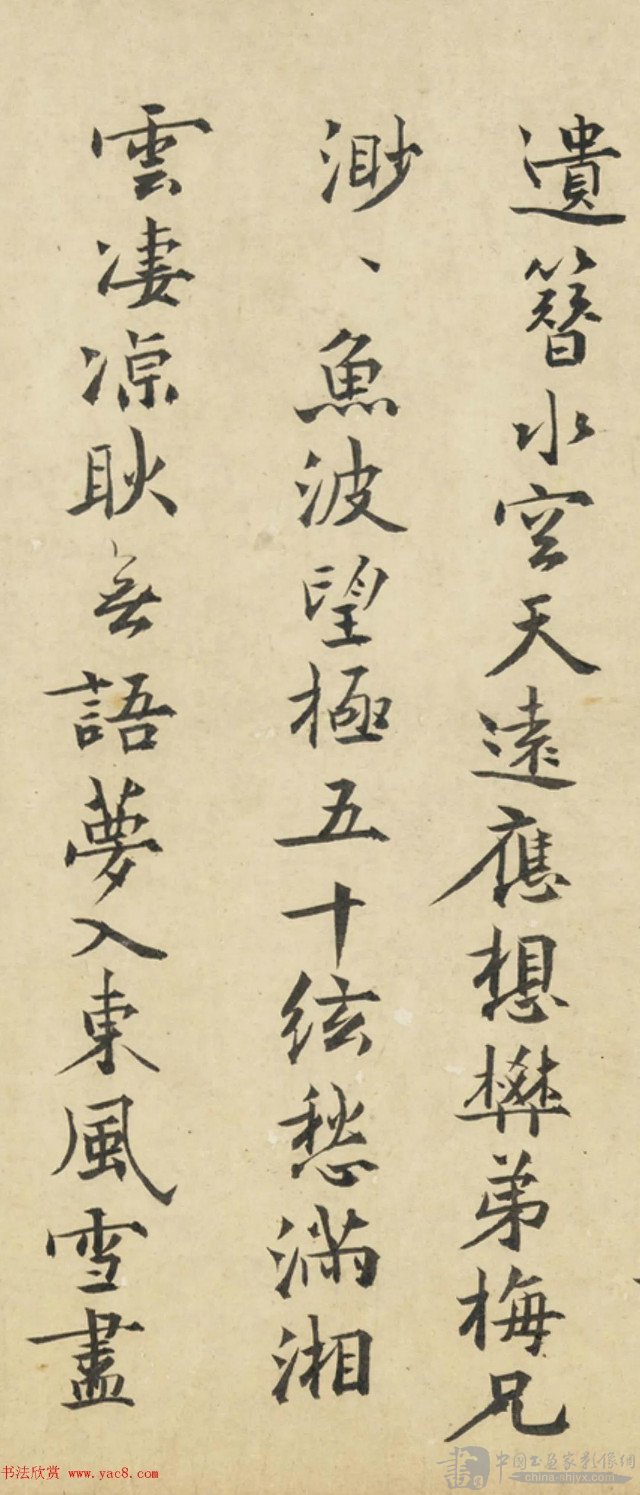 遺簪水空天遠應想樊弟梅兄
渺、魚波望極五十絃愁滿湘
雲凄凉耿無語夢入東風雪盡
书法欣赏 www.yac8.com
書 中國書畫家影像網
china-shiyx.com